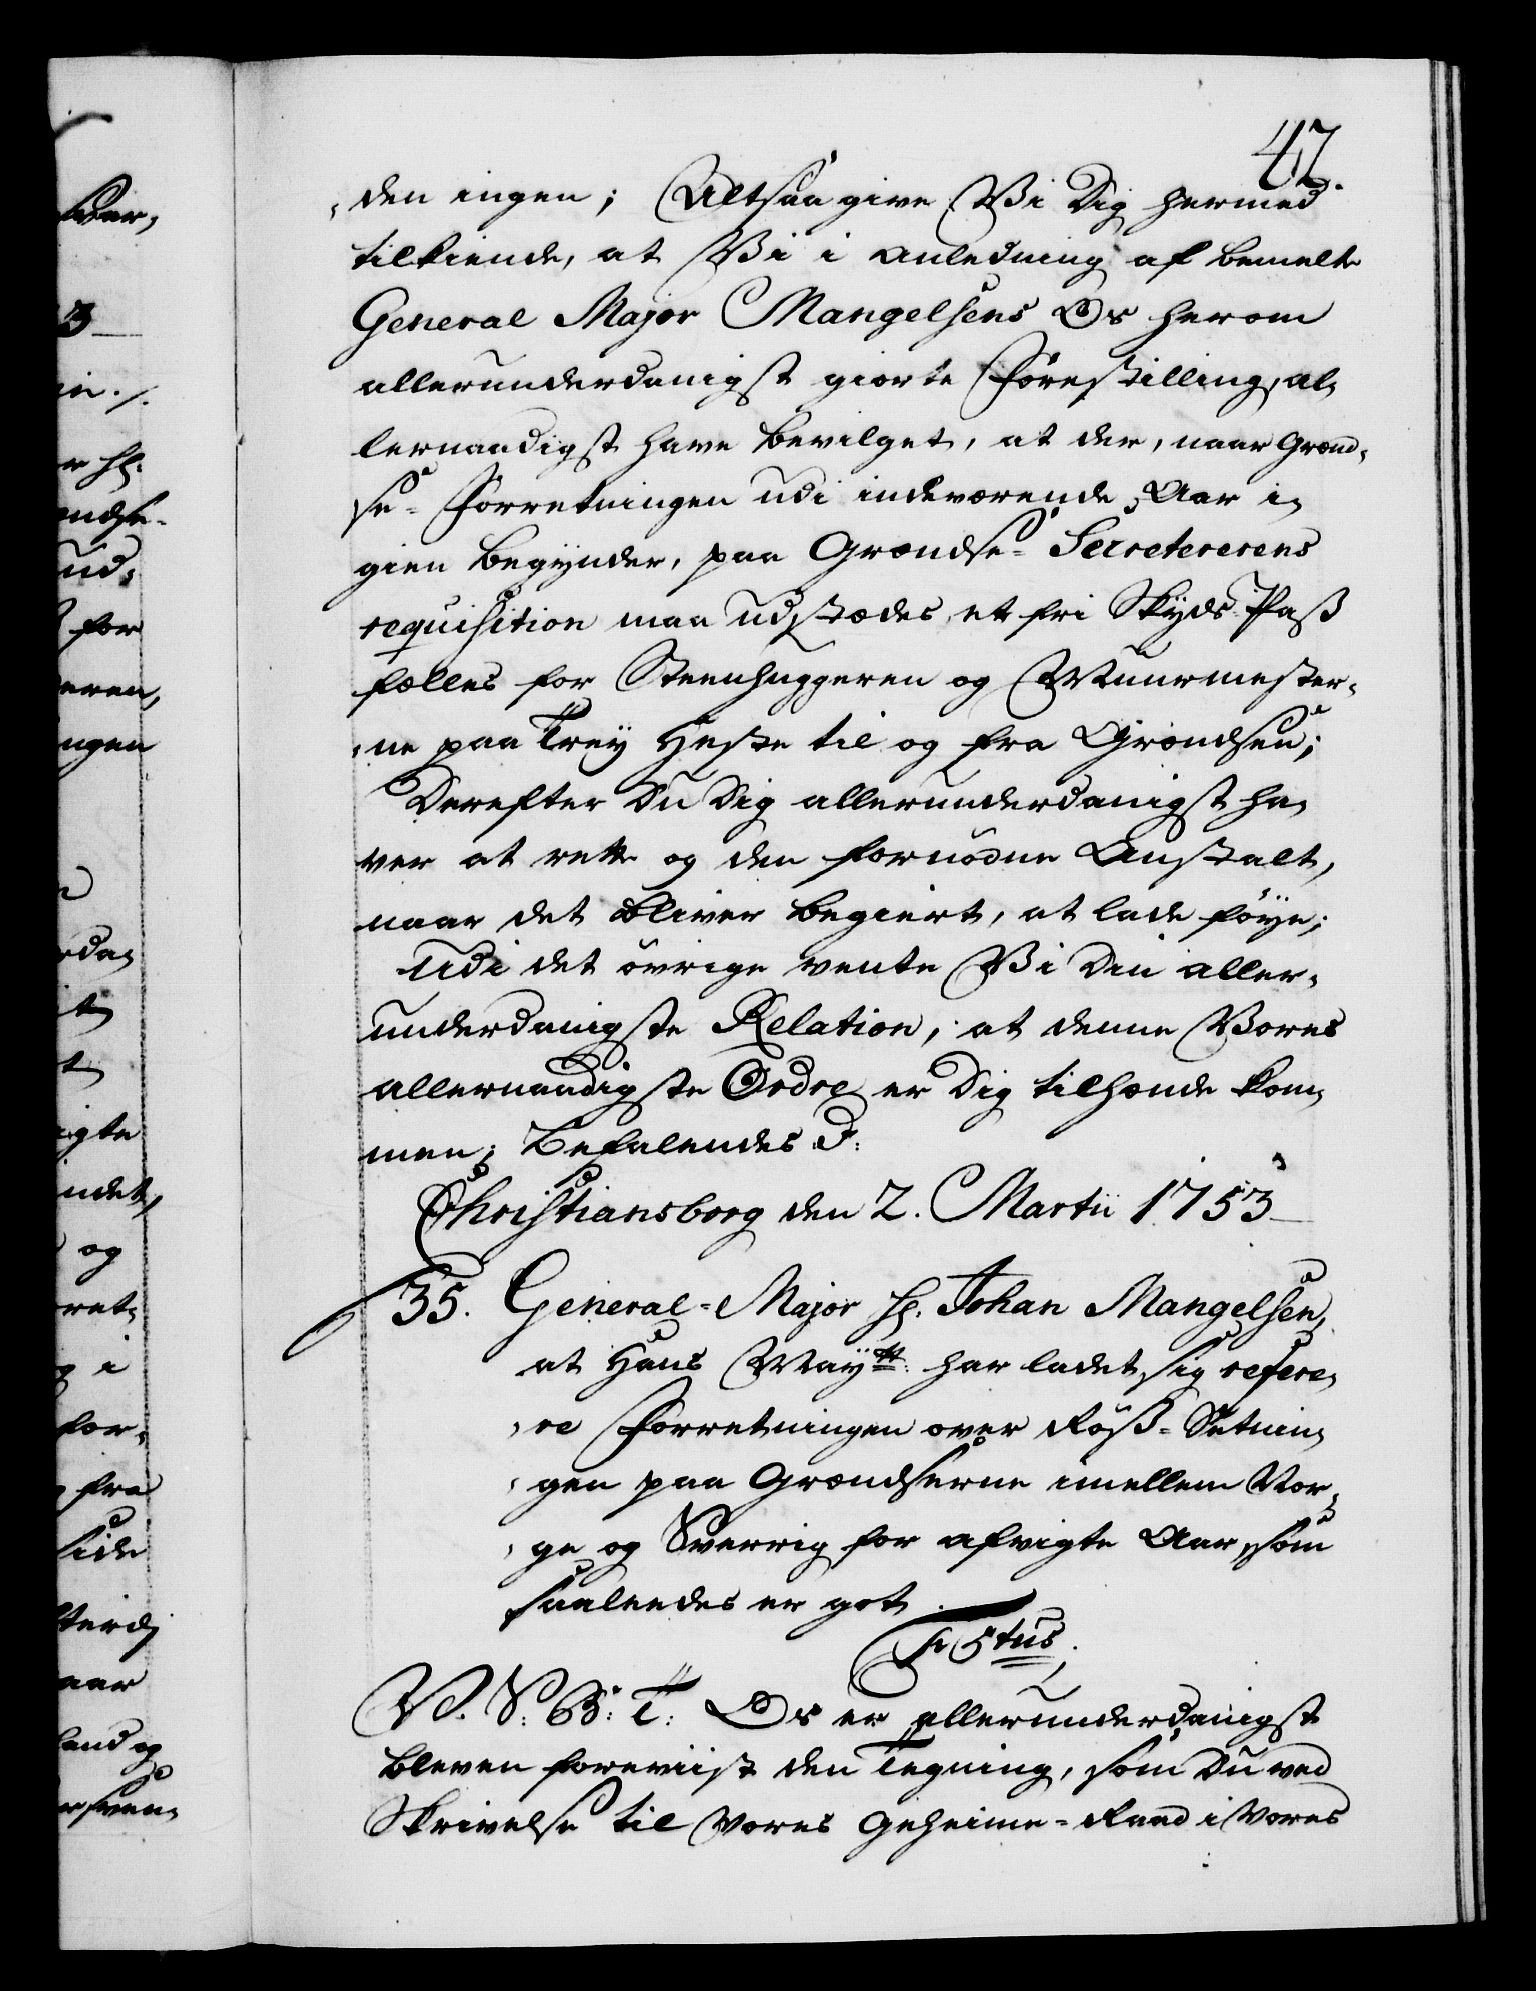 47.
den ingen; Altsaa give Vi Dig hermed
tilkiende, at Vi i anledning af bemelte
General Major Mangelsens Os herom
allerunderdanigst giorte Forestilling, al,
lernaadigst have bevilget, at der, naar Grænd,
se-Forretningen udi indeværende Aar i,
gien begynder, paa Grændse-Secretererens
requisition maa udstædes et fri Skyds-Pass
fælles for Steenhuggeren og Muurmester,
ne paa Trey Heste til og fra Grændsen;
Derefter Du Dig allerunderdanigst ha,
ver at rette og den fornødne Anstalt,
naar det bliver begiert, at lade føye;
Udi det øvrige vente Vi Din aller,
underdanigste Relation, at denne Vores
allernaadigste Ordre er Dig tilhænde kom,
men; Befalendes D:
Christiansborg den 2. Martii 1753
35. General-Major Hr. Johan Mangelsen,
at Hans Mayst: har ladet sig refere,
re Forretningen over Røss-Sætnin,
gen paa Grændserne imellem Nor,
ge og Sverrig for afvigte Aar, som
saaledes er got.
Fr 5tus.
V. S: G: T: Os er allerunderdanigst
bleven foreviist den Tegning, som Du ved
Skrivelse til Vores Geheime-Raad i Vores
ver,
3
in ./.
r Hr:
ændse-
ud,
for
eren,
ngen
rda,
it
t
igte
ndet,
og
ret,
g i
for,
fra
side
aar
land og